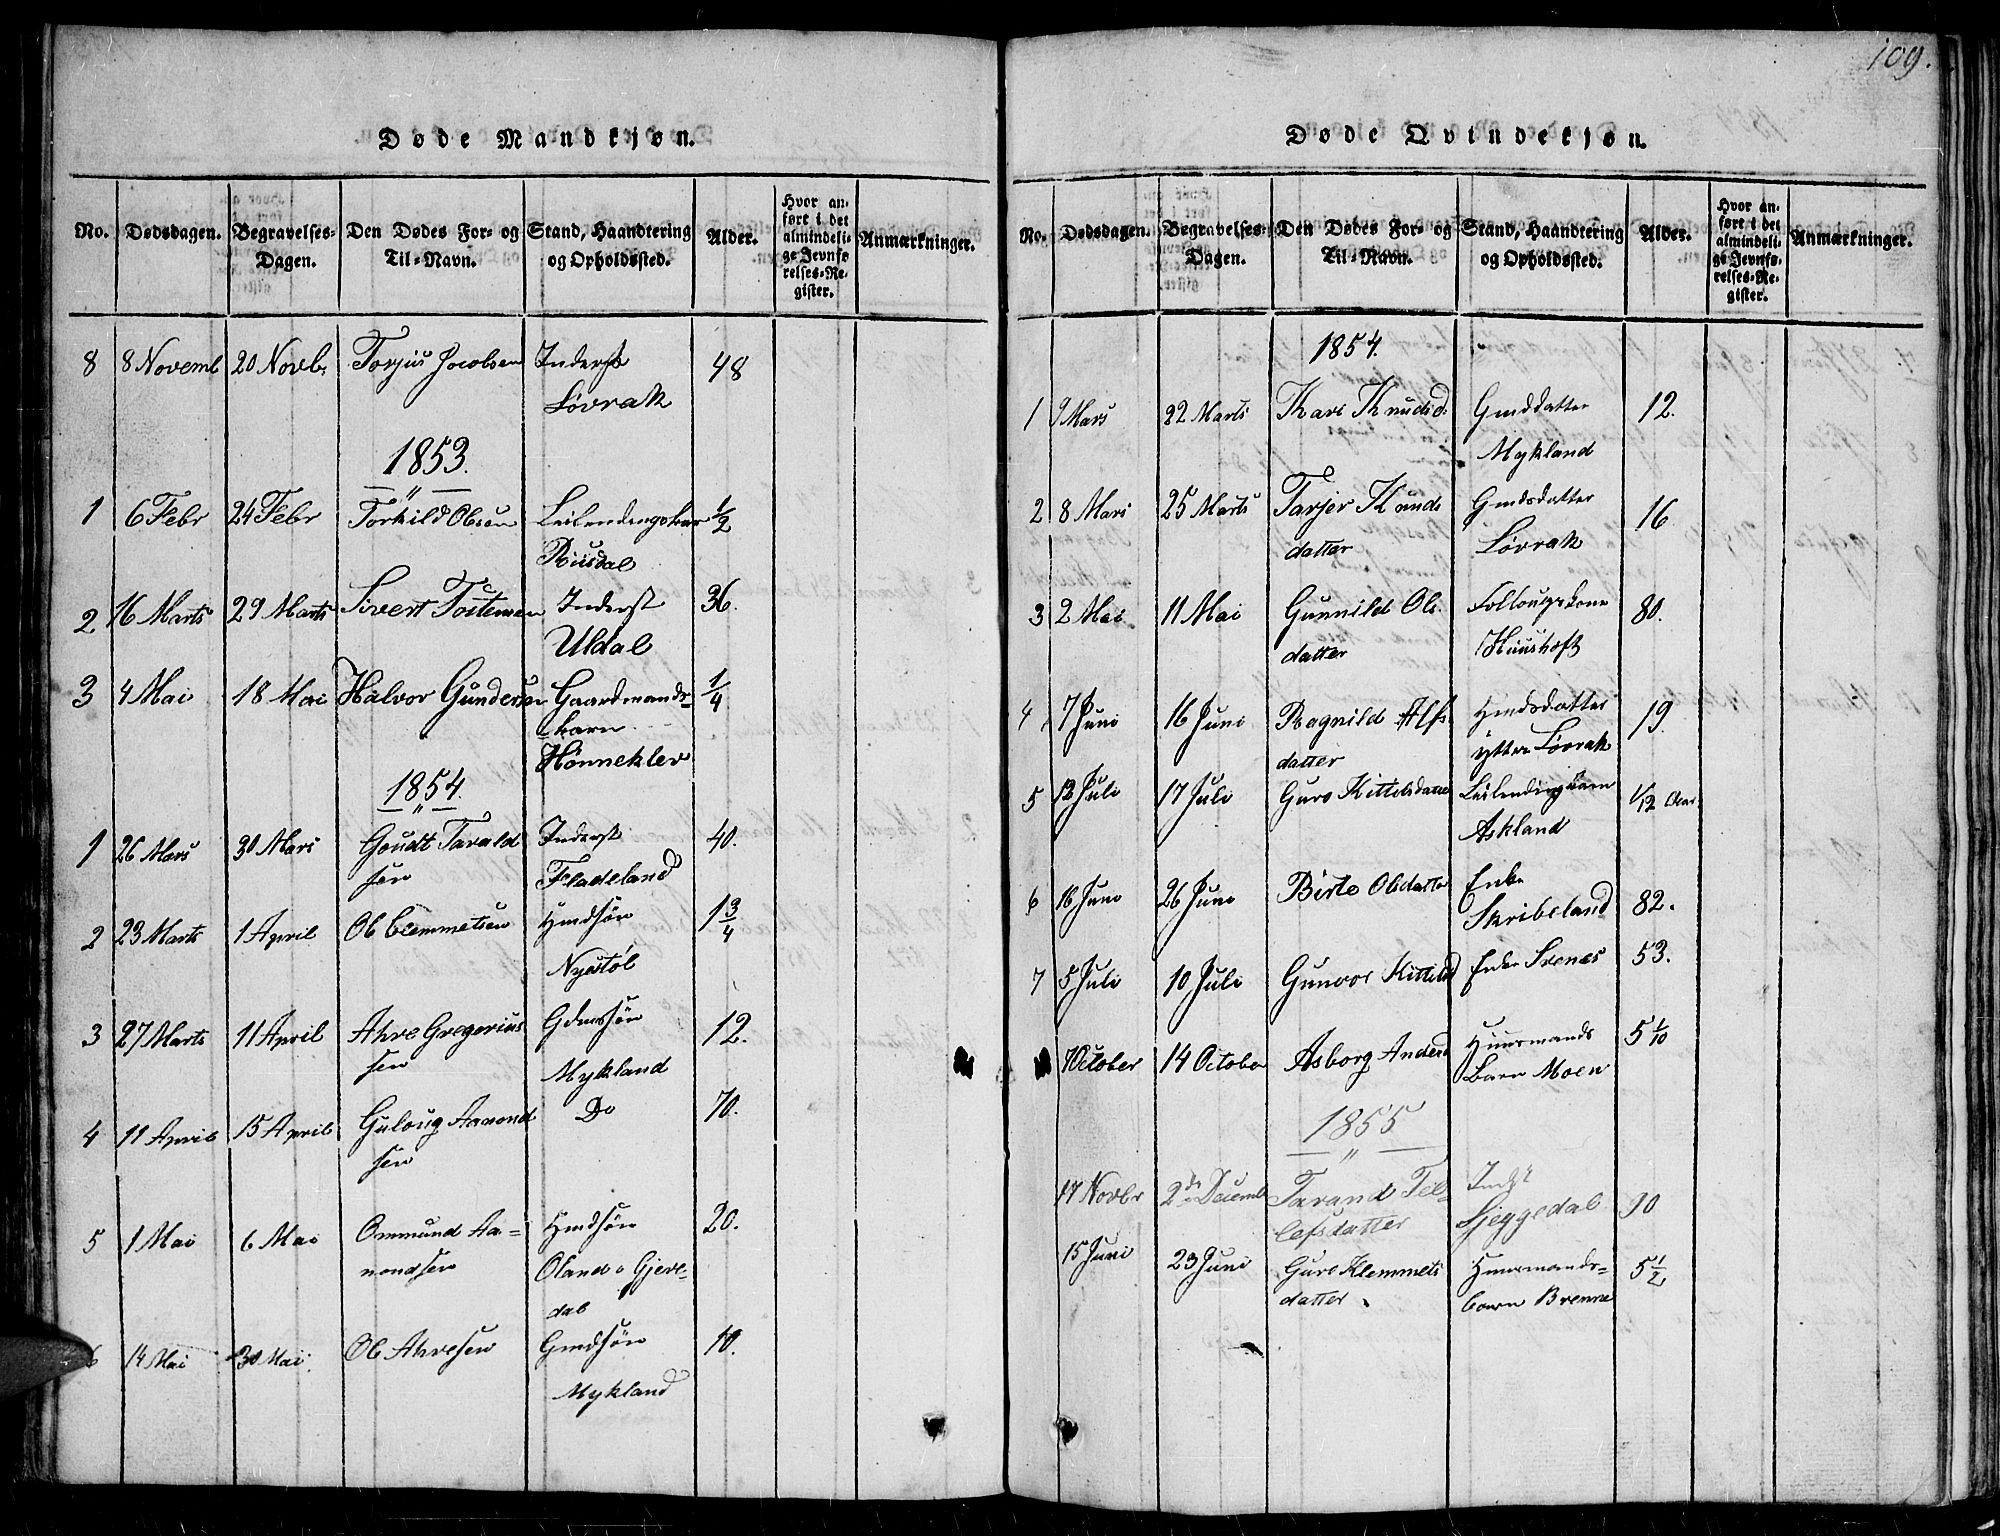 109.
Døde Mandkjøn.
No. Dødsdagen. Begravelses-Dagen. Den Dødes For- og Til-Navn. Stand, Haandtering og Opholdssted. Alder. Hvor anført i det almindelige Jevnførelses-Register. Anmærkninger.
8 8 Novemb 20 Novb. Torjus Jacobsen Inderst 48
Løvrak
1853.
1 6 Febr 24 Febr Torkild Olsen Leilendings barn 1/2
Riisdal
2 16 Marts 29 Marts Sivert Tostensen Inderst 36.
Uldal
3 4 Mai 18 Mai Halvor Gundersen Gaardmands- 1/4
barn
Hønneklev
1854.
1 26 Mars 30 Mars Goudt Tarald Inderst 40.
sen Fladeland
2 23 Marts 1 April Ol Clemmetsen Hmdsøn 1 3/4
Nystøl
3 27 Marts 11 April Ahre Gregerius Gdmssøn 12.
sen Mykland
4 11 April 15 April Guloug Aamond Do 70.
sen
5 1 Mai 6 Mai Ommund Aa- Hmdsøn 20.
nondsen Oland i Gjeve-
dal
6 14 Mai 30 Mai Ol Ahresen Gmdsøn 10.
Mykland
Døde Qvindekjøn.
No. Dødsdagen. Begravelses-Dagen. Den Dødes For- og Til-Navn. Stand, Haandtering og Opholdssted. Alder. Hvor anført i det almindelige Jevnførelses-Register. Anmærkninger.
1854.
1 9 Mars 22 Marts Kari Knudsd. Gmddatter 12.
Mykland
2 8 Mars 25 Marts Tarjer Knuds Gmdsdatter 16
datter Løvrak
3 2 Mai 11 Mai Gunnild Ols Follougskone 80.
datter Huushoft
4 7 Juni 16 Juni Ragnild Alfs Hmdsdatter 19.
datter ytter Løvrak
5 12 Juli 17 Juli Guro Kittelsdatter Leilendingsbarn 1/12 Aar
Askland
6 16 Juni 26 Juni Birte Olsdatter Enke
Skribeland 82.
7 5 Juli 10 Juli Gunvor Kittelsd Enke Svenes 53.
October 14 October Asborg Andersd Huusmands 5 1/10
Barn Moen
1855
17 Novbr 2de Decemb Tarand Tel- Indst
lefsdatter Sjeggedal 90
15 Juni 23 Juni Guro Klemmets Huusmands- 5 1/2
datter. barn Brenne